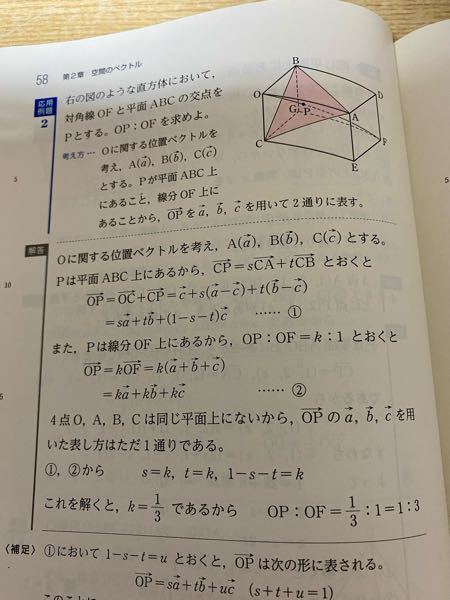 58 第2章 空間のベクトル
応用
例題
2
右の図のような直方体において,
対角線 OF と平面 ABC の交点を
P とする。OP:OF を求めよ。
考え方… O に関する位置ベクトルを
考え, A(a⃗), B(b⃗), C(c⃗)
とする。P が平面 ABC 上
にあること, 線分 OF 上に
あることから, OP⃗ を a⃗, b⃗, c⃗ を用いて 2 通りに表す。
B
O
D
G
P
A
C
F
E
5
解答
O に関する位置ベクトルを考え, A(a⃗), B(b⃗), C(c⃗) とする。
P は平面 ABC 上にあるから, CP⃗=sCA⃗+tCB⃗ とおくと
10
OP⃗=OC⃗+CP⃗=c⃗+s(a⃗-c⃗)+t(b⃗-c⃗)
=sa⃗+tb⃗+(1-s-t)c⃗ …… ①
また, P は線分 OF 上にあるから, OP:OF=k:1 とおくと
OP⃗=kOF⃗=k(a⃗+b⃗+c⃗)
=ka⃗+kb⃗+kc⃗ …… ②
5
4点 O, A, B, C は同じ平面上にないから, OP⃗ の a⃗, b⃗, c⃗ を用
いた表し方はただ 1 通りである。
①, ② から s=k, t=k, 1-s-t=k
これを解くと, k=1/3 であるから OP:OF=1/3:1=1:3
〈補足〉 ①において 1-s-t=u とおくと, OP⃗ は次の形に表される。
OP⃗=sa⃗+tb⃗+uc⃗ (s+t+u=1)